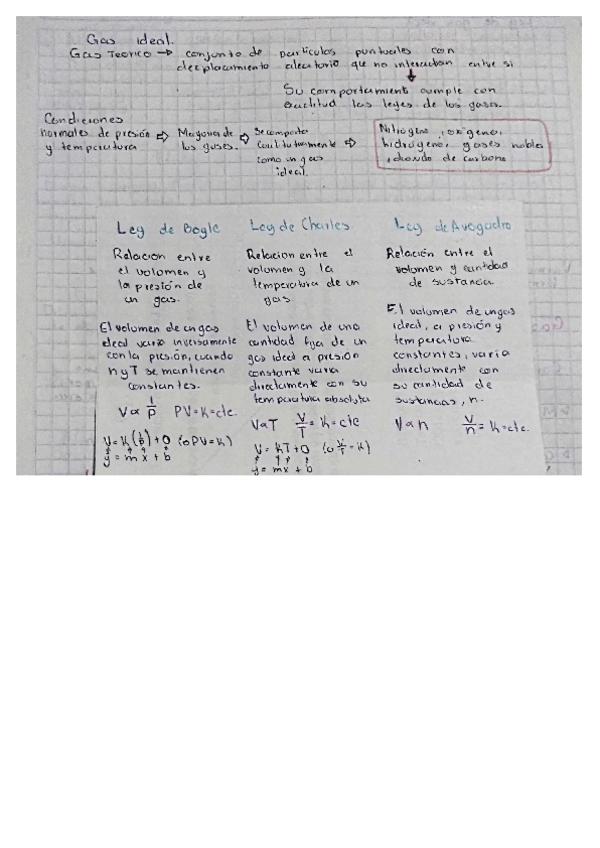 Gas ideal.
Gas Teorico → conjunto de particulas puntuales con
desplazamiento aleatorio que no interactuan entre si
Su comportamiento cumple con
exactitud las leyes de los gases.
Condiciones
normales de presión
y temperatura
⇨ Mayoria de
los gases. ⇨
Se comporta
Cualitativamente
como un gas
ideal. ⇨
Nitrógeno, oxigeno,
hidrógeno, gases nobles
, dioxido de carbono
Ley de Boyle
Relacion entre
el volumen y
la presión de
un gas.
El volumen de un gas
ideal varia inversamente
con la presión, cuando
n y T se mantienen
constantes.
V ∝ 1/P PV = K = cte.
V = K (1/P) + 0 (o PV = K)
y = m x + b
Ley de Charles
Relacion entre el
volumen y la
temperatura de un
gas.
El volumen de una
cantidad fija de un
gas ideal a presión
constante varia
directamente con su
temperatura absoluta
V ∝ T V/T = K = cte
V = KT + 0 (o V/T = K)
y = mx + b
Ley de Avogadro
Relación entre el
volumen y cantidad
de sustancia.
El volumen de un gas
ideal, a presión y
temperatura
constantes, varia
directamente con
su cantidad de
sustancias, n.
V ∝ n V/n = K = cte.